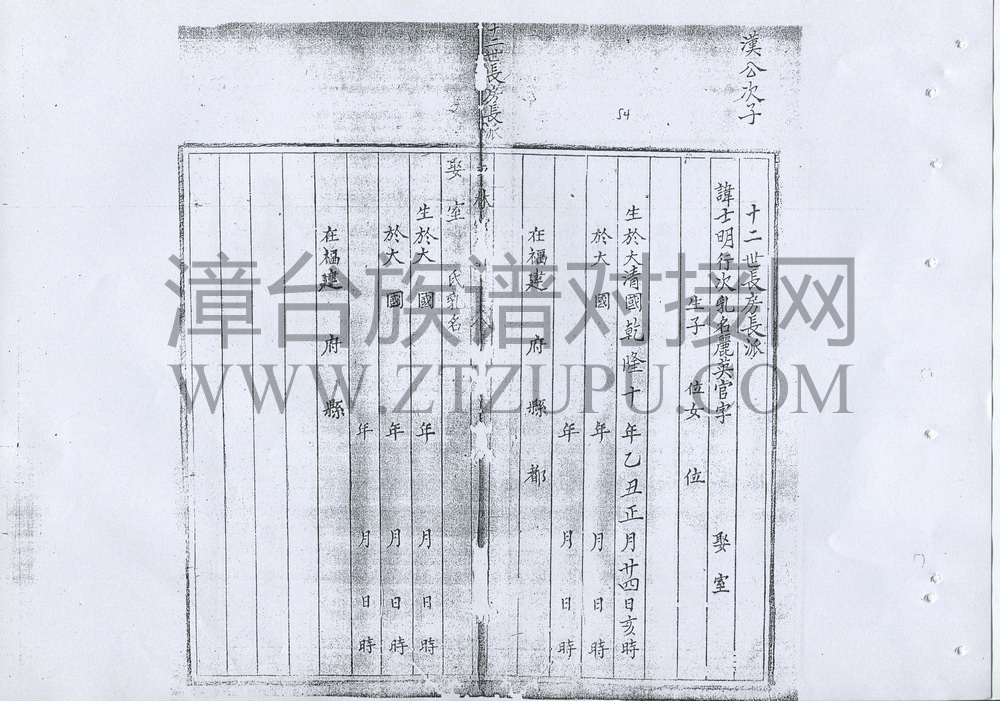 漢公次子
54
十二世長房長派
諱士明行次乳名麗英官字 娶室
生子 位女 位
生於大清國乾隆十年乙丑正月廿四日亥時
於大 國 年 月 日 時
年 月 日 時
在福建 府 縣 都
十二世長房長派
娶室 氏乳名
生於大 國 年 月 日 時
於大 國 年 月 日 時
年 月 日 時
在福建 府 縣
漳台族谱对接网
WWW.ZTZUPU.COM